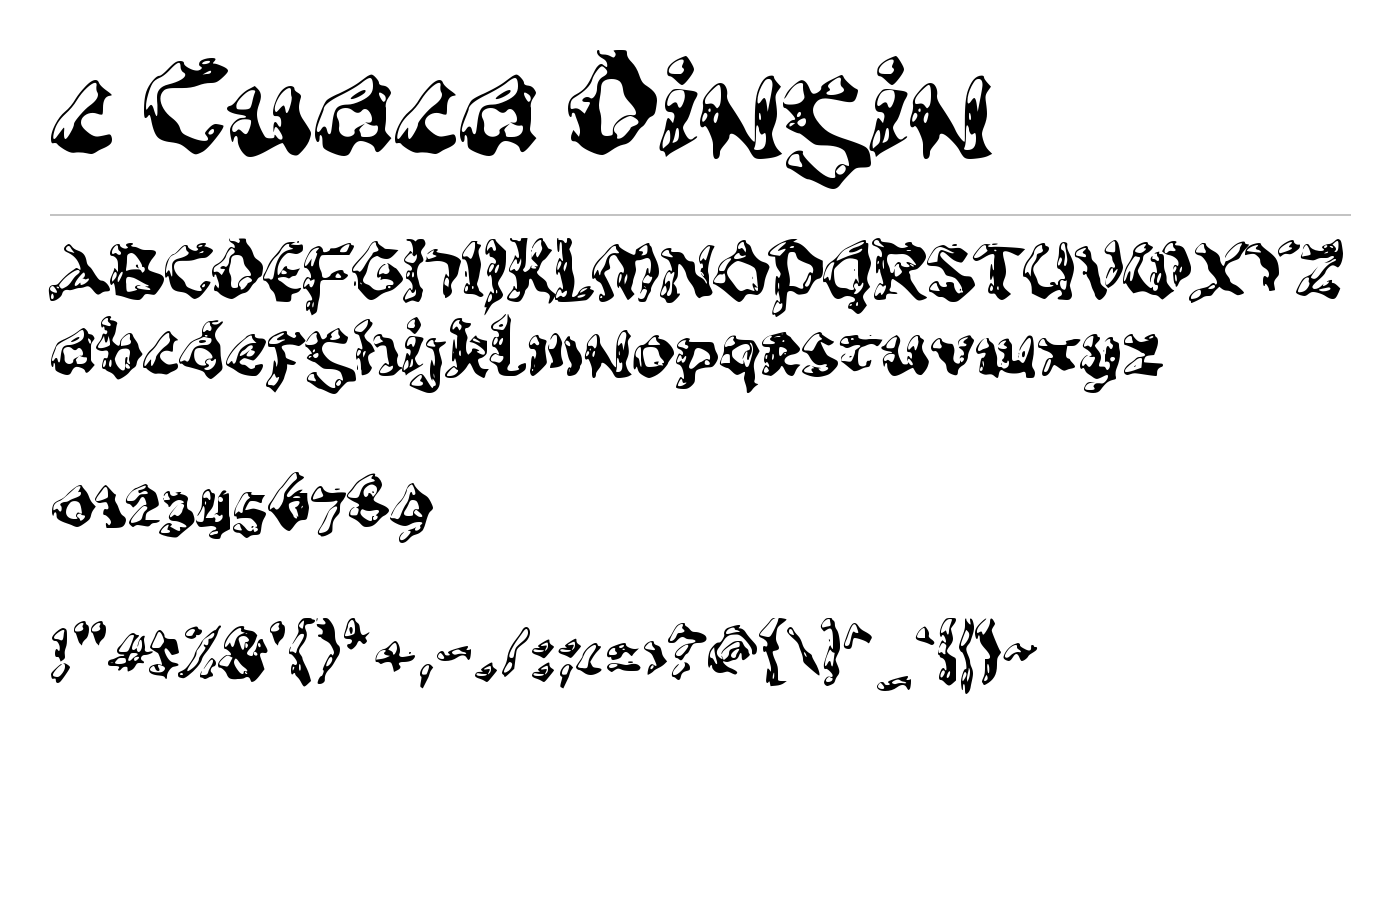 c Cuaca Dingin
ABCDEFGHIJKLMNOPQRSTUVWXYZ
abcdefghijklmnopqrstuvwxyz
0123456789
!"#$%&'()*+,-./:;<=>?@[\]^_`{|}~